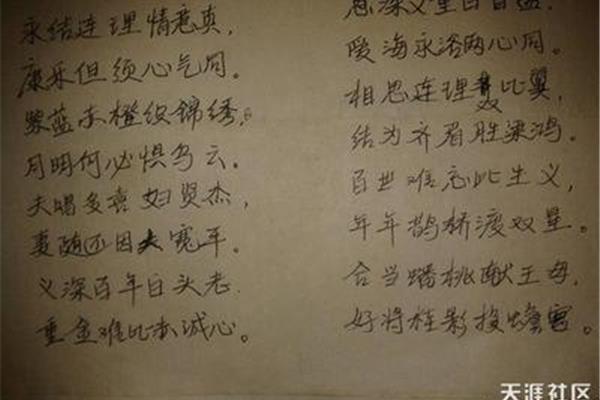 永结连理情意真，
康乐但须心气同。
紫蓝赤橙织锦绣，
月明何必惧乌云。
夫唱多喜妇贤杰，
妻随还因夫宽平。
义深百年白头老
重金难比本诚心。
恩深义重百
陵海永浴两心同。
相思连理 比翼，
结为齐眉胜梁鸿。
百世难忘此生义，
年年鹊桥渡双星。
合当蟠桃献王母，
好将桂影投蟾宫。
天涯社区